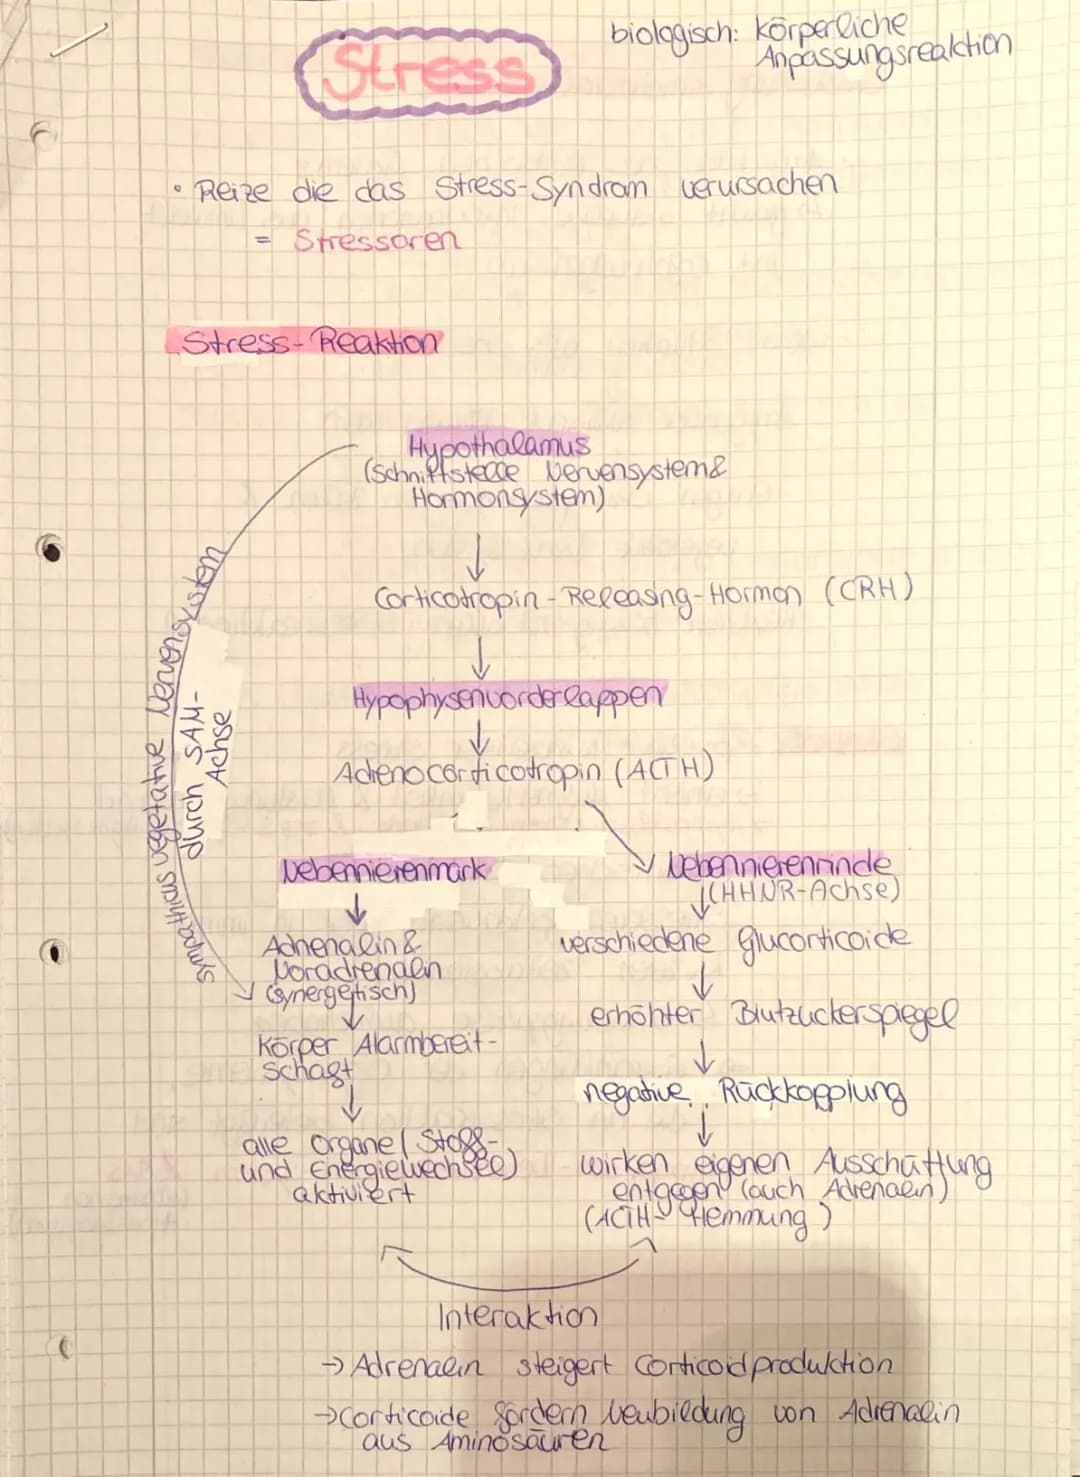 Stress
biologisch: körperliche
Anpassungsreaktion
• Reize die das Stress-Syndrom verursachen
= Stressoren
Stress-Reaktion
Hypothalamus
(Schnittstelle Nervensystem &
Hormonsystem)
↓
Corticotropin-Releasing-Hormon (CRH)
↓
Hypophysenvorderlappen
↓
Adrenocorticotropin (ACTH)
sympathius vegetative Nervensystem
durch SAM-
Achse
Nebennierenmark
↓
Adrenalin &
Noradrenalin
(synergetisch)
↓
Körper Alarmbereit-
schaft
↓
alle Organe (Stoff-
und Energiewechsel)
aktiviert
Nebennierenrinde
↓ (HHNR-Achse)
verschiedene Glucorticoide
↓
erhöhter Blutzuckerspiegel
↓
negative Rückkopplung
↓
wirken eigenen Ausschüttung
entgegen (auch Adrenalin)
(ACTH-Hemmung)
Interaktion
→ Adrenalin steigert Corticoidproduktion
→ Corticoide fördern Neubildung von Adrenalin
aus Aminosäuren